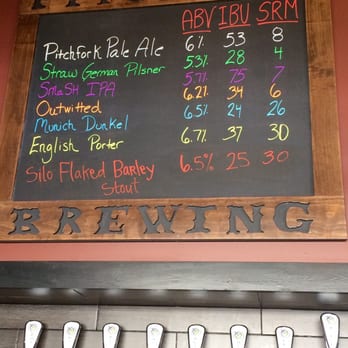 ABV IBU SRM
Pitchfork Pale Ale 6% 53 8
Straw German Pilsner 5.3% 28 4
SMaSH IPA 5.7% 75 7
Outwitted 6.2% 34 6
Munich Dunkel 6.5% 24 26
English Porter 6.7% 37 30
Silo Flaked Barley 6.5% 25 30
Stout
BREWING